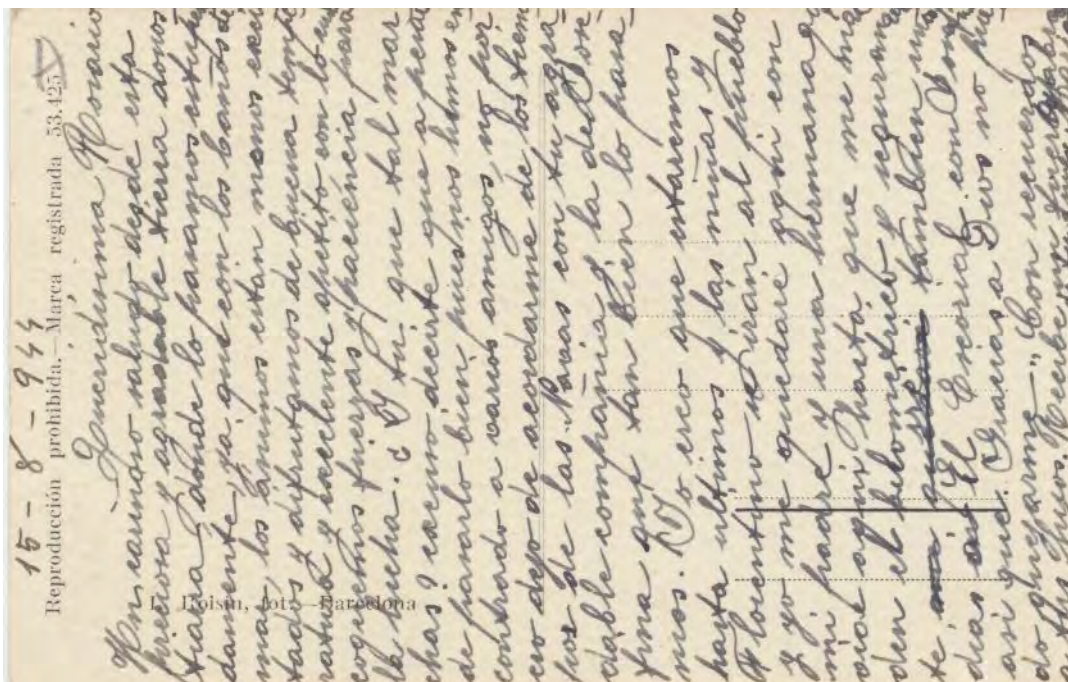 15-8-944
Reproducción prohibida.—Marca registrada 53.425
Queridísima Rosario
Un cariñoso saludo desde esta
preciosa y agradable tierra donos-
tiara, donde lo pasamos estupen-
damente, ya que con los baños de
mar, los ánimos están menos exci-
tados y disfrutamos de buena tempe-
ratura y excelente apetito con lo que
cogemos fuerzas y paciencia para
la lucha. ¿Y tú, que tal mar-
chas? decirte que a pesar
de pasarlo bien pues nos hemos en-
contrado a varios amigos, no por
eso dejo de acordarme de los tiem-
pos de las Navas con tu agra-
dable compañia y la de Jose-
fina que tan bien lo pasa-
mos. Yo creo que estaremos
hasta ultimos y las niñas y
Florentino se irán al pueblo
y yo me quedaré aqui con
mi padre y una hermana,
aqui hasta que me man-
den el kilométrico y seguramen-
te iré tambien unos
dias al Escorial con
asi que. Gracias a Dios no pue-
do quejarme. Con recuerdos
a tus hijos. Recibe un fuerte
L. Roisin, fot.—Barcelona